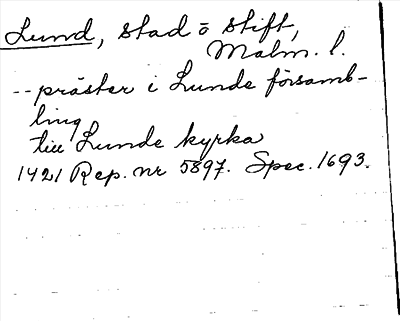 Lund, stad o stift,
Malm. l.
-- präster i Lunde församb-
ling
till Lunde kyrka
1421 Rep. nr 5897. Spec. 1693.